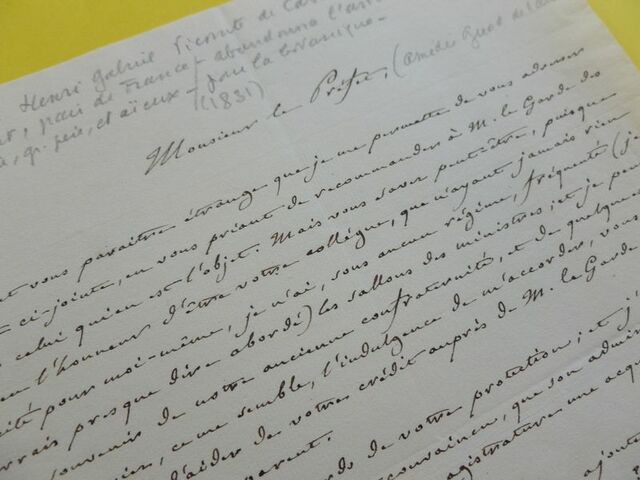 Henri Gabriel Vicomte de
pair de France - abandonna
gr. père, et aïeux - pour la botanique -
(1831)
Monsieur le Préfet,
vous paraître étrange que je me permette de vous adresser
ci-jointe, en vous priant de recommander à M. le Garde des
celui qui en est l'objet. Mais vous savez peut-être, puisque
l'honneur d'être votre collègue, que n'ayant jamais rien
pour moi-même, je n'ai, sous aucun régime, fréquenté (je
presque dire abordé) les sallons des ministres; et je
souvenir de notre ancienne confraternité, et de quelques
ce me semble, l'indulgence de m'accorder, vous
d'aider de votre crédit auprès de M. le Garde
de votre protection, et j'
convaincu, que son
magistrature une